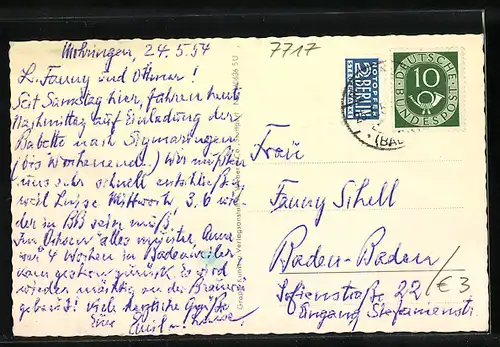 Möhringen, 24.5.54
L. Fanny und Ottmar!
Seit Samstag hier, fahren heute
Nachmittag auf Einladung der
Babette nach Sigmaringen
(bis Wochenend.) Wir mußten
uns sehr schnell entschließen,
weil Luise Mittwoch, 3.6 wieder
in BB sein muß.
Im Ochsen alles munter, Anna
war 4 Wochen in Badenweiler
kam gestern zurück. Es wird
wieder mächtig an der Brauerei
gebaut! Viele herzliche Grüße
Eure Emil u. Luise
7717
NOTOPFER
2 BERLIN
STEUERMARKE
DEUTSCHE BUNDESPOST
10
(BAD
Frau
Fanny Schell
Baden-Baden
Sofienstraße 22
Eingang Stefanienstr.
€3